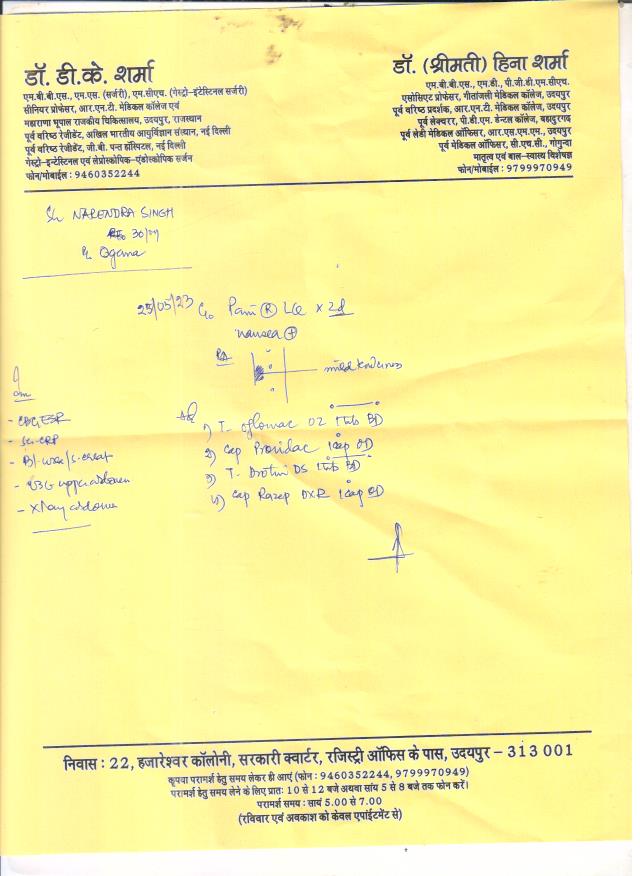 डॉ. डी.के. शर्मा
एम.बी.बी.एस., एम.एस. (सर्जरी), एम.सीएच. (गेस्ट्रो-इंटेस्टिनल सर्जरी)
सीनियर प्रोफेसर, आर.एन.टी. मेडिकल कॉलेज एवं
महाराणा भूपाल राजकीय चिकित्सालय, उदयपुर, राजस्थान
पूर्व वरिष्ठ रेजीडेंट, अखिल भारतीय आयुर्विज्ञान संस्थान, नई दिल्ली
पूर्व वरिष्ठ रेजीडेंट, जी.बी. पन्त हॉस्पिटल, नई दिल्ली
गेस्ट्रो-इन्टेस्टिनल एवं लेप्रोस्कोपिक-एंडोस्कोपिक सर्जन
फोन/मोबाईल : 9460352244
डॉ. (श्रीमती) हिना शर्मा
एम.बी.बी.एस., एम.डी., पी.जी.डी.एम.सीएच.
एसोसिएट प्रोफेसर, गीतांजली मेडिकल कॉलेज, उदयपुर
पूर्व वरिष्ठ प्रदर्शक, आर.एन.टी. मेडिकल कॉलेज, उदयपुर
पूर्व लेक्चरर, पी.डी.एम. डेन्टल कॉलेज, बहादुरगढ़
पूर्व लेडी मेडिकल ऑफिसर, आर.एस.एम.एम., उदयपुर
पूर्व मेडिकल ऑफिसर, सी.एच.सी., गोगुन्दा
मातृत्व एवं बाल-स्वास्थ्य विशेषज्ञ
फोन/मोबाईल : 9799970949
NARENDRA SINGH
30/M
Ogana
25/05/23 C/o Pain (R) × 2d
nausea +
P/A
mild tenderness
Adv
1) T- oflomac OZ 1 tab BD
2) Cap Providac 1 cap OD
3) T- Drotin DS 1 tab BD
4) Cap Razep DXR 1 cap OD
- CBC, ESR
- Sr. CRP
- Bl. urea/s. creat
- USG upper abdomen
- X Ray abdomen
निवास : 22, हजारेश्वर कॉलोनी, सरकारी क्वार्टर, रजिस्ट्री ऑफिस के पास, उदयपुर - 313 001
कृपया परामर्श हेतु समय लेकर ही आएं (फोन : 9460352244, 9799970949)
परामर्श हेतु समय लेने के लिए प्रातः 10 से 12 बजे अथवा सांय 5 से 8 बजे तक फोन करें।
परामर्श समय : सायं 5.00 से 7.00
(रविवार एवं अवकाश को केवल एपाईंटमेंट से)